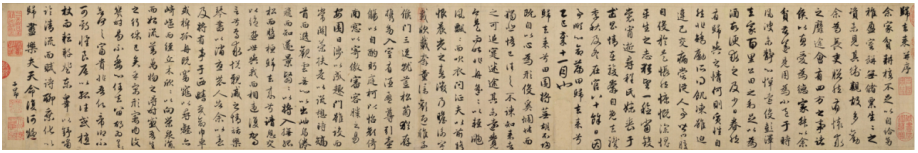 歸去來并序
余家貧耕植不足以自給幼
稚盈室缾無儲粟生生之
資未見其術親故多勸
余為長吏脫然有懷求
之靡途會有四方之事諸
侯以惠愛為德家叔以
余貧苦遂見用為小邑于時
風波未靜心憚遠役彭澤
去家百里公田之利足以為
酒故便求之及少日眷然
有歸與之情何則質性自
然非矯勵所得飢凍雖切
違己交病嘗從人事皆口
腹自役於是悵然慷慨深愧
平生之志猶望一稔當斂
裳宵逝尋程氏妹喪于
武昌情在駿奔自免去職仲
秋至冬在官八十餘日因
事順心命篇曰歸去來兮
乙巳歲十一月也
歸去來兮田園將蕪胡不
歸既自以心為形役奚惆悵而
獨悲悟已往之不諫知來者
之可追實迷途其未遠覺
今是而昨非舟遙遙以輕颺
風飄飄而吹衣問征夫以前路
恨晨光之熹微乃瞻衡宇
載欣載奔童僕歡迎稚子
候門三逕就荒松菊猶存
攜幼入室有酒盈樽引壺
觴以自酌眄庭柯以怡顏倚
南窗以寄傲審容膝之易
安園日涉以成趣門雖設而
常關策扶老以流憩時矯
首而遐觀雲無心以出岫鳥
倦飛而知還景翳翳以將入撫孤
松而盤桓歸去來兮請息交
以絕遊世與我而相遺復駕
言兮焉求悅親戚之情話樂
琴書以消憂農人告余以春
及將有事于西疇或命巾車
或棹孤舟既窈窕以尋壑亦
崎嶇而經丘木欣欣以向榮泉涓涓
而始流羨萬物之得時感吾生
之行休已矣乎寓形宇內復
幾時曷不委心任去留胡為遑遑
欲何之富貴非吾願帝鄉不
可期懷良辰以孤往或植
杖而耘耔登東皋以舒嘯
臨清流而賦詩聊乘化以
歸盡樂夫天命復奚疑
子昂